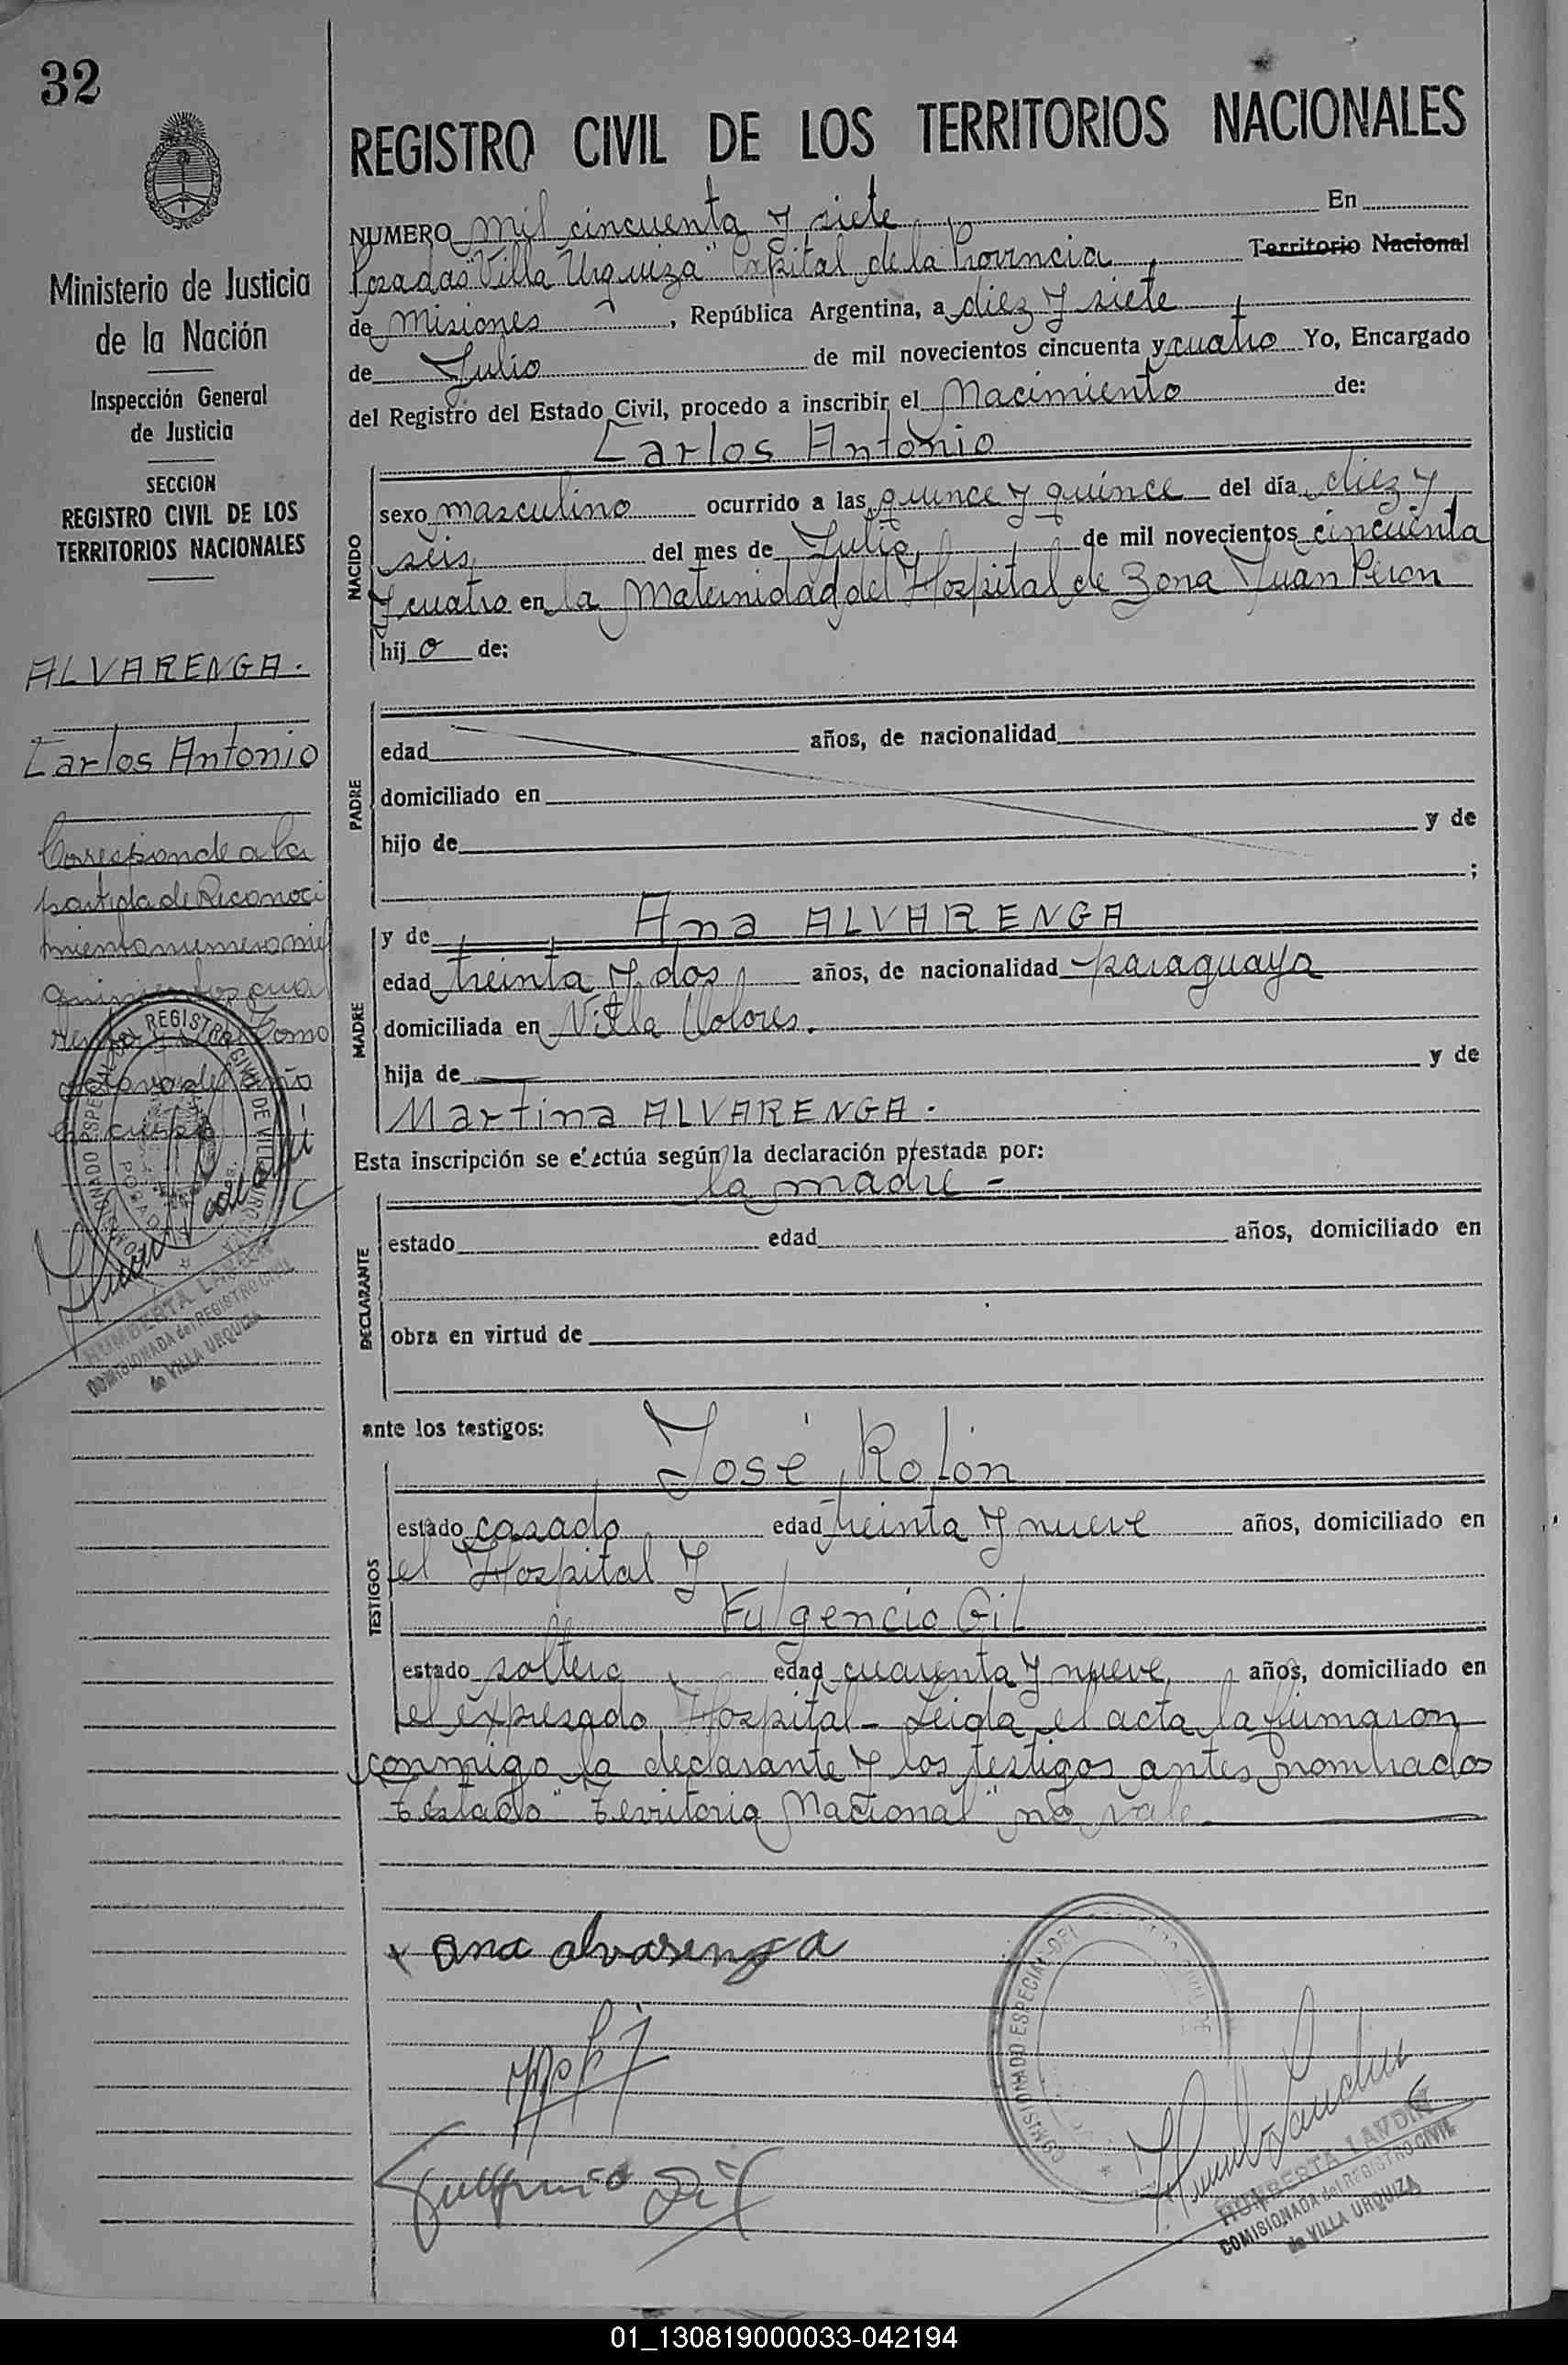 32
REGISTRO CIVIL DE LOS TERRITORIOS NACIONALES
Ministerio de Justicia
de la Nación
Inspección General
de Justicia
SECCION
REGISTRO CIVIL DE LOS
TERRITORIOS NACIONALES
ALVARENGA.
Carlos Antonio
Corresponde a la
partida de Reconoci
miento numero mil
quinientos cua
Tomo
octavo del año
en curso
HUMBERTA LANDIN
COMISIONADA del REGISTRO CIVIL
de VILLA URQUIZA
NUMERO mil cincuenta y siete En
Posadas "Villa Urquiza" Capital de la Provincia Territorio Nacional
de Misiones, República Argentina, a diez y siete
de Julio de mil novecientos cincuenta y cuatro Yo, Encargado
del Registro del Estado Civil, procedo a inscribir el Nacimiento de:
Carlos Antonio
NACIDO
sexo masculino ocurrido a las quince y quince del día diez y
seis del mes de Julio de mil novecientos cincuenta
y cuatro en la Maternidad del Hospital de Zona Juan Peron
hijo de:
PADRE
edad años, de nacionalidad
domiciliado en
hijo de y de
;
MADRE
y de Ana ALVARENGA
edad treinta y dos años, de nacionalidad paraguaya
domiciliada en Villa Dolores.
hija de y de
Martina ALVARENGA.
Esta inscripción se efectúa según la declaración prestada por:
la madre -
DECLARANTE
estado edad años, domiciliado en
obra en virtud de
ante los testigos:
José Rolón
TESTIGOS
estado casado edad treinta y nueve años, domiciliado en
el Hospital y
Fulgencio Gil
estado soltero edad cuarenta y nueve años, domiciliado en
el expresado Hospital - Leida el acta la firmaron
conmigo la declarante y los testigos antes nombrados
Testado "Territorio Nacional" no vale
x ana alvarenga
Fulgencio Gil
COMISIONADO ESPECIAL DEL
HUMBERTA LANDIN
COMISIONADA del REGISTRO CIVIL
de VILLA URQUIZA
01_130819000033-042194